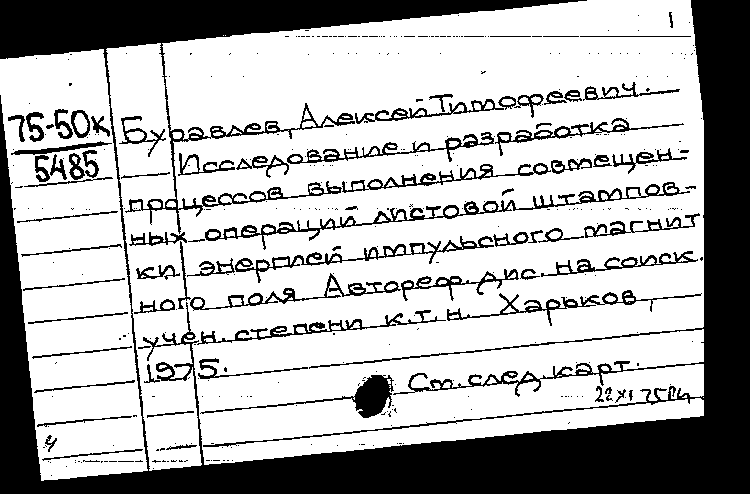 1
75-50к
5485
Буравлев, Алексей Тимофеевич.
Исследование и разработка
процессов выполнения совмещен-
ных операций листовой штампов-
ки энергией импульсного магнит
ного поля. Автореф. дис. на соиск.
учен. степени к.т.н. Харьков,
1975.
См. след. карт.
22 XI 75
4